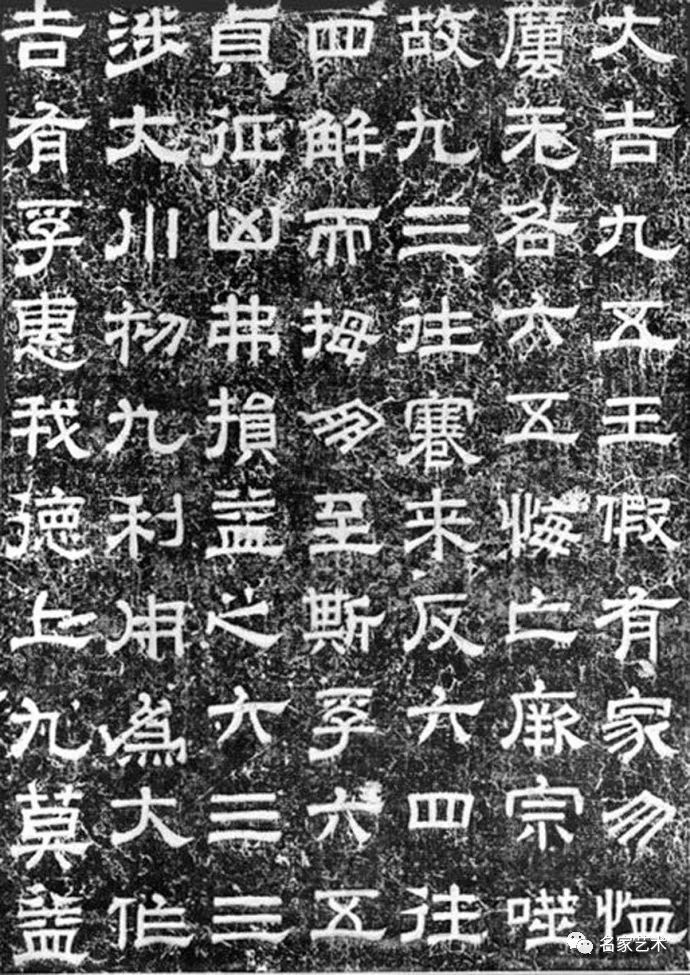 大吉九五王假有家勿恤
厲无咎六五悔亡厥宗噬
故九三往蹇来反六四往
四解而拇朋至斯孚六五
貞征凶弗損益之六三三
涉大川初九利用為大作
吉有孚惠我德上九莫益
名家艺术